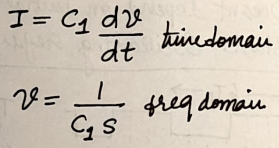 I = C₁ dv/dt time domain
v = 1/(C₁ s) freq domain